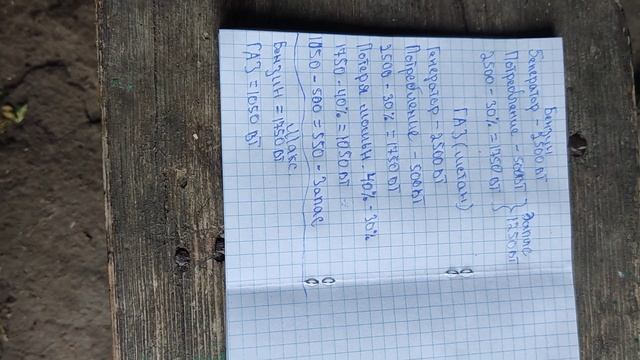 Бензин
Генератор - 2500 Вт
Потребление - 500 Вт } Запас
2500 - 30% = 1750 Вт } 1250 Вт
ГАЗ (метан)
Генератор - 2500 Вт
Потребление - 500 Вт
2500 - 30% = 1750 Вт
Потеря мощьн - 40% - 30%
1750 - 40% = 1050 Вт
1050 - 500 = 550 - Запас
Макс
Бензин = 1750 Вт
ГАЗ = 1050 Вт